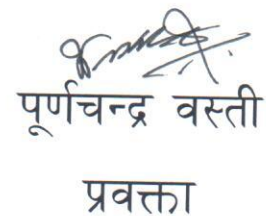 पूर्णचन्द्र वस्ती
प्रवक्ता